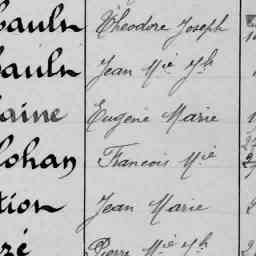 bault Théodore Joseph
bault Jean Mie Jh
laine Eugène Marie
lohan Francois Mie
tion Jean Marie 2
zé Pierre Mie Jh 2